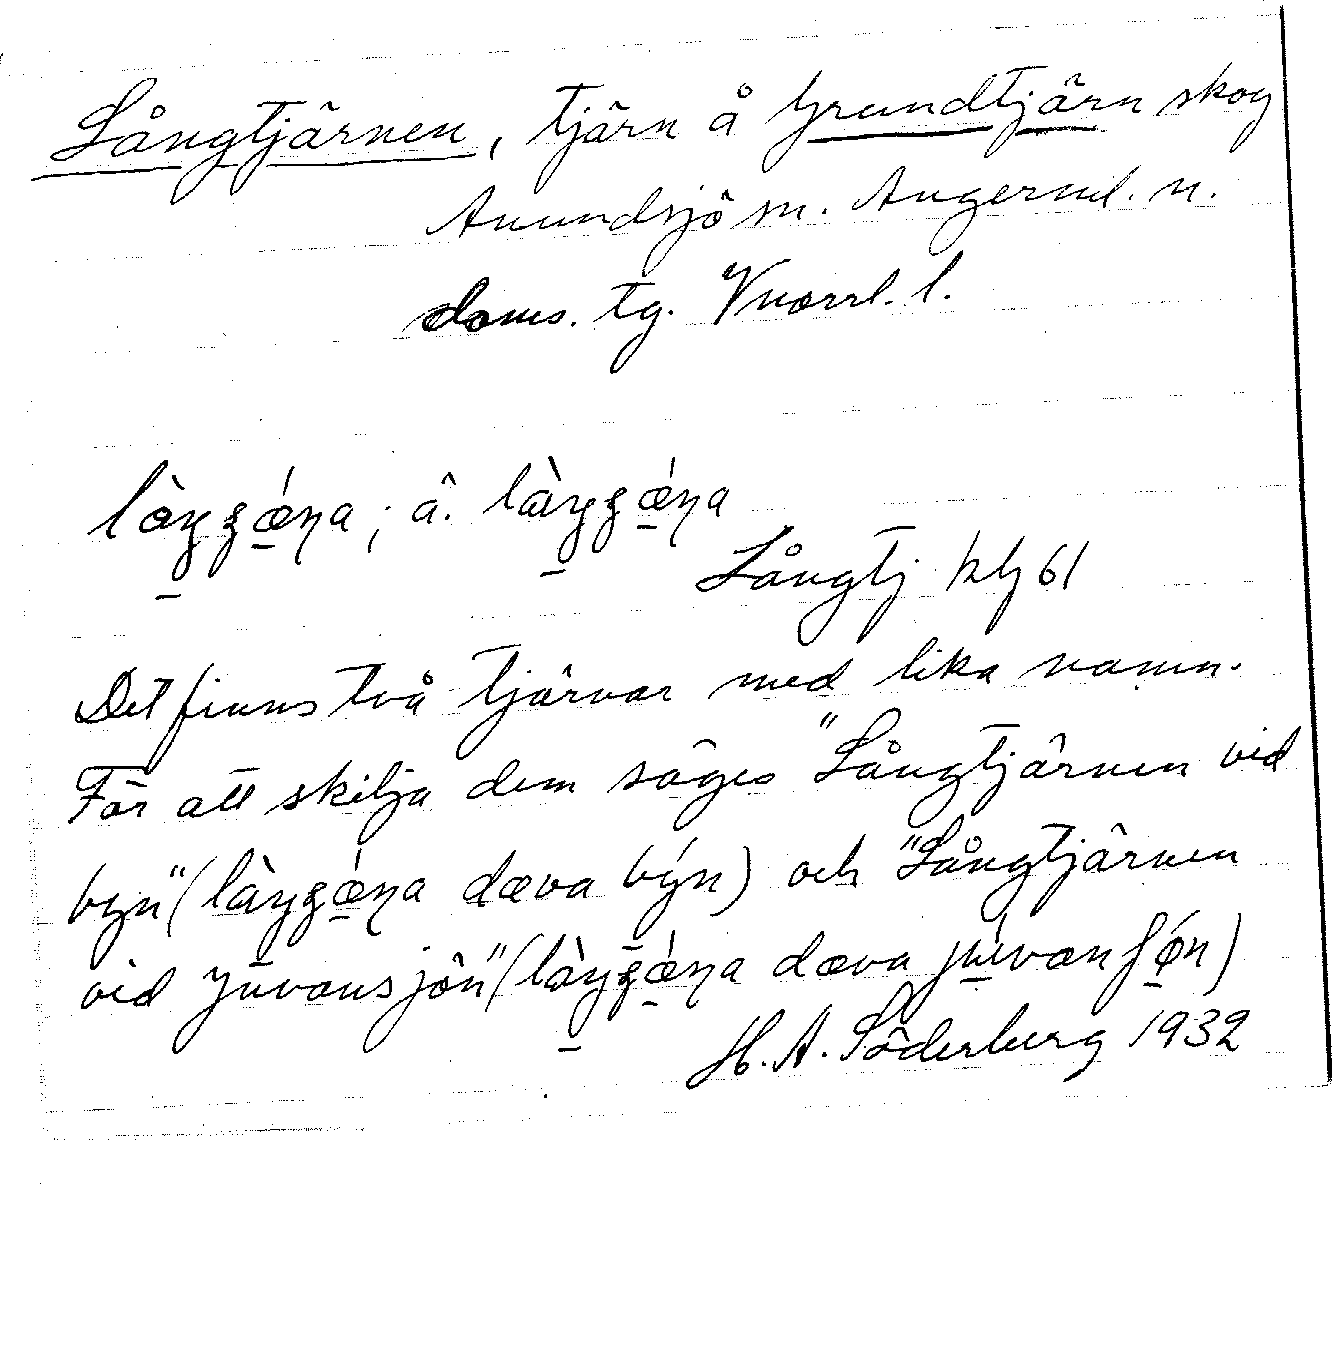 Långtjärnen, tjärn å Grundtjärn skog
Anundsjö sn. Ångerml. n.
doms. tg. Vnorrl. l.
làŋgǽṇa; ä. làŋgǽṇa
Långtj. kbl 61
Det finns två tjärnar med lika namn.
För att skilja dem säges "Långtjärnen vid
byn" (làŋgǽṇa dæva býn) och "Långtjärnen
vid Juvansjön" (làŋgǽṇa dæva
H. A. Söderberg 1932